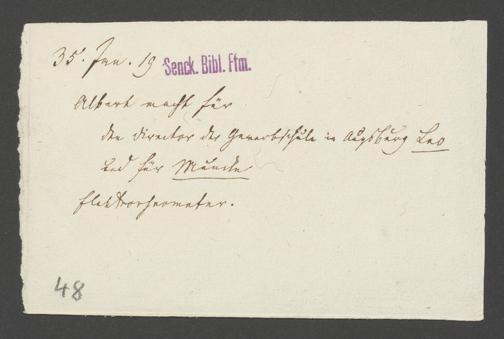 35. Jan. 19 Senck. Bibl. Ffm.
Albert macht für
den Director der Gewerbschule in Augsburg Leo
und für Muncke
Elektrothermometer.
48